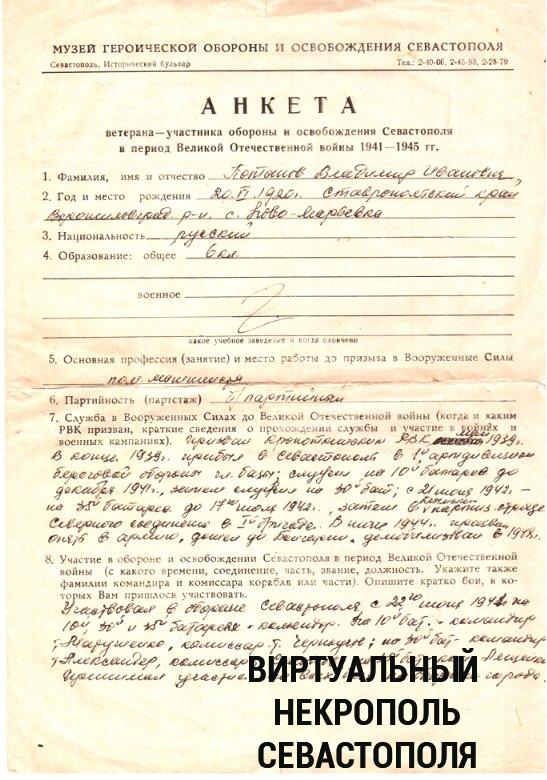 МУЗЕЙ ГЕРОИЧЕСКОЙ ОБОРОНЫ И ОСВОБОЖДЕНИЯ СЕВАСТОПОЛЯ
Севастополь, Исторический бульвар Тел.: 2-40-06, 2-45-93, 2-28-79
АНКЕТА
ветерана—участника обороны и освобождения Севастополя
в период Великой Отечественной войны 1941—1945 гг.
1. Фамилия, имя и отчество Владимир Иванович
2. Год и место рождения 20.VI.1920г. Ставропольский край
р-н с. Ново-Марьевка
3. Национальность русский
4. Образование: общее 6 кл.
военное
какое учебное заведение и когда окончено
5. Основная профессия (занятие) и место работы до призыва в Вооруженные Силы
пом. машиниста
6. Партийность (партстаж) б/партийный
7. Служба в Вооруженных Силах до Великой Отечественной войны (когда и каким
РВК призван, краткие сведения о прохождении службы и участие в войнах и
военных кампаниях). Призван Кропоткинским РВК 1939г.
В конце 1939г. прибыл в Севастополь в 1й артдивизион
береговой обороны гл. базы; служил на 10й батарее до
декабря 1941г., затем служил на 30й бат; с 1942г.
на 35й батарее до 17го июля 1942г., затем в партиз. отряде
Северного соединения в бригаде. В 1944г. призван
опять в армию, дошел до Болгарии, демобилизован в
8. Участие в обороне и освобождении Севастополя в период Великой Отечественной
войны (с какого времени, соединение, часть, звание, должность. Укажите также
фамилии командира и комиссара корабля или части). Опишите кратко бои, в ко-
торых Вам пришлось участвовать.
Участвовал в обороне Севастополя с 22го июня на
10й 30й и 35й батареях - комендор. На 10й бат. - командир
т. Матушенко, комиссар т. на 30й бат - командир
т. Александер, комиссар
Принимал участие города.
ВИРТУАЛЬНЫЙ
НЕКРОПОЛЬ
СЕВАСТОПОЛЯ